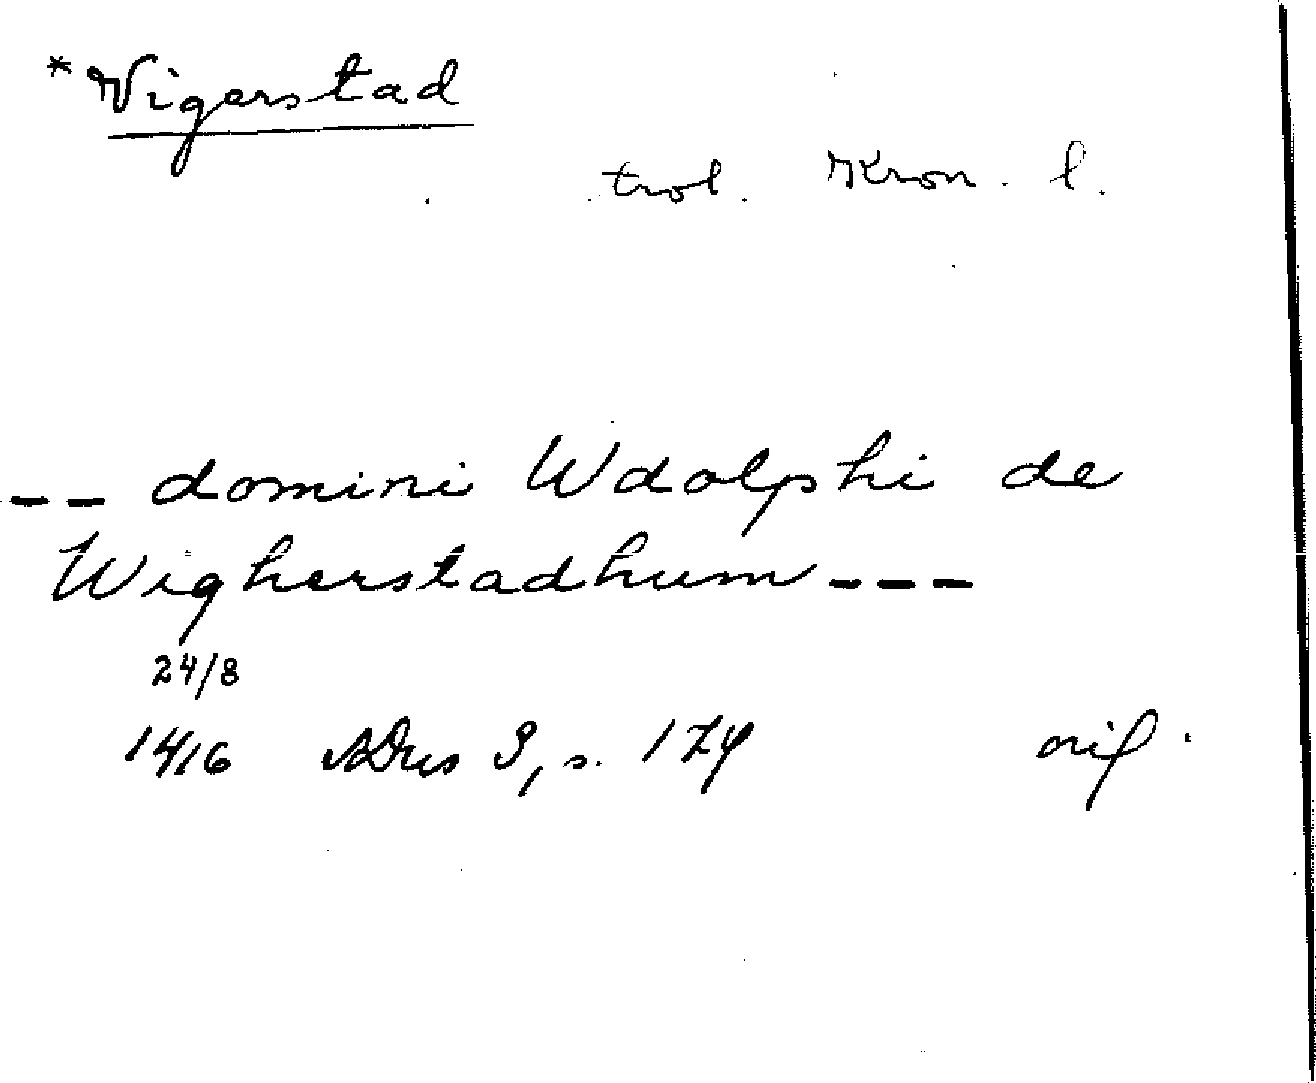 *Vigerstad
trol. Kron. l.
-- domini Wdolphi de
Wigherstadhum ---
24/8
1416 s. 179 orig.